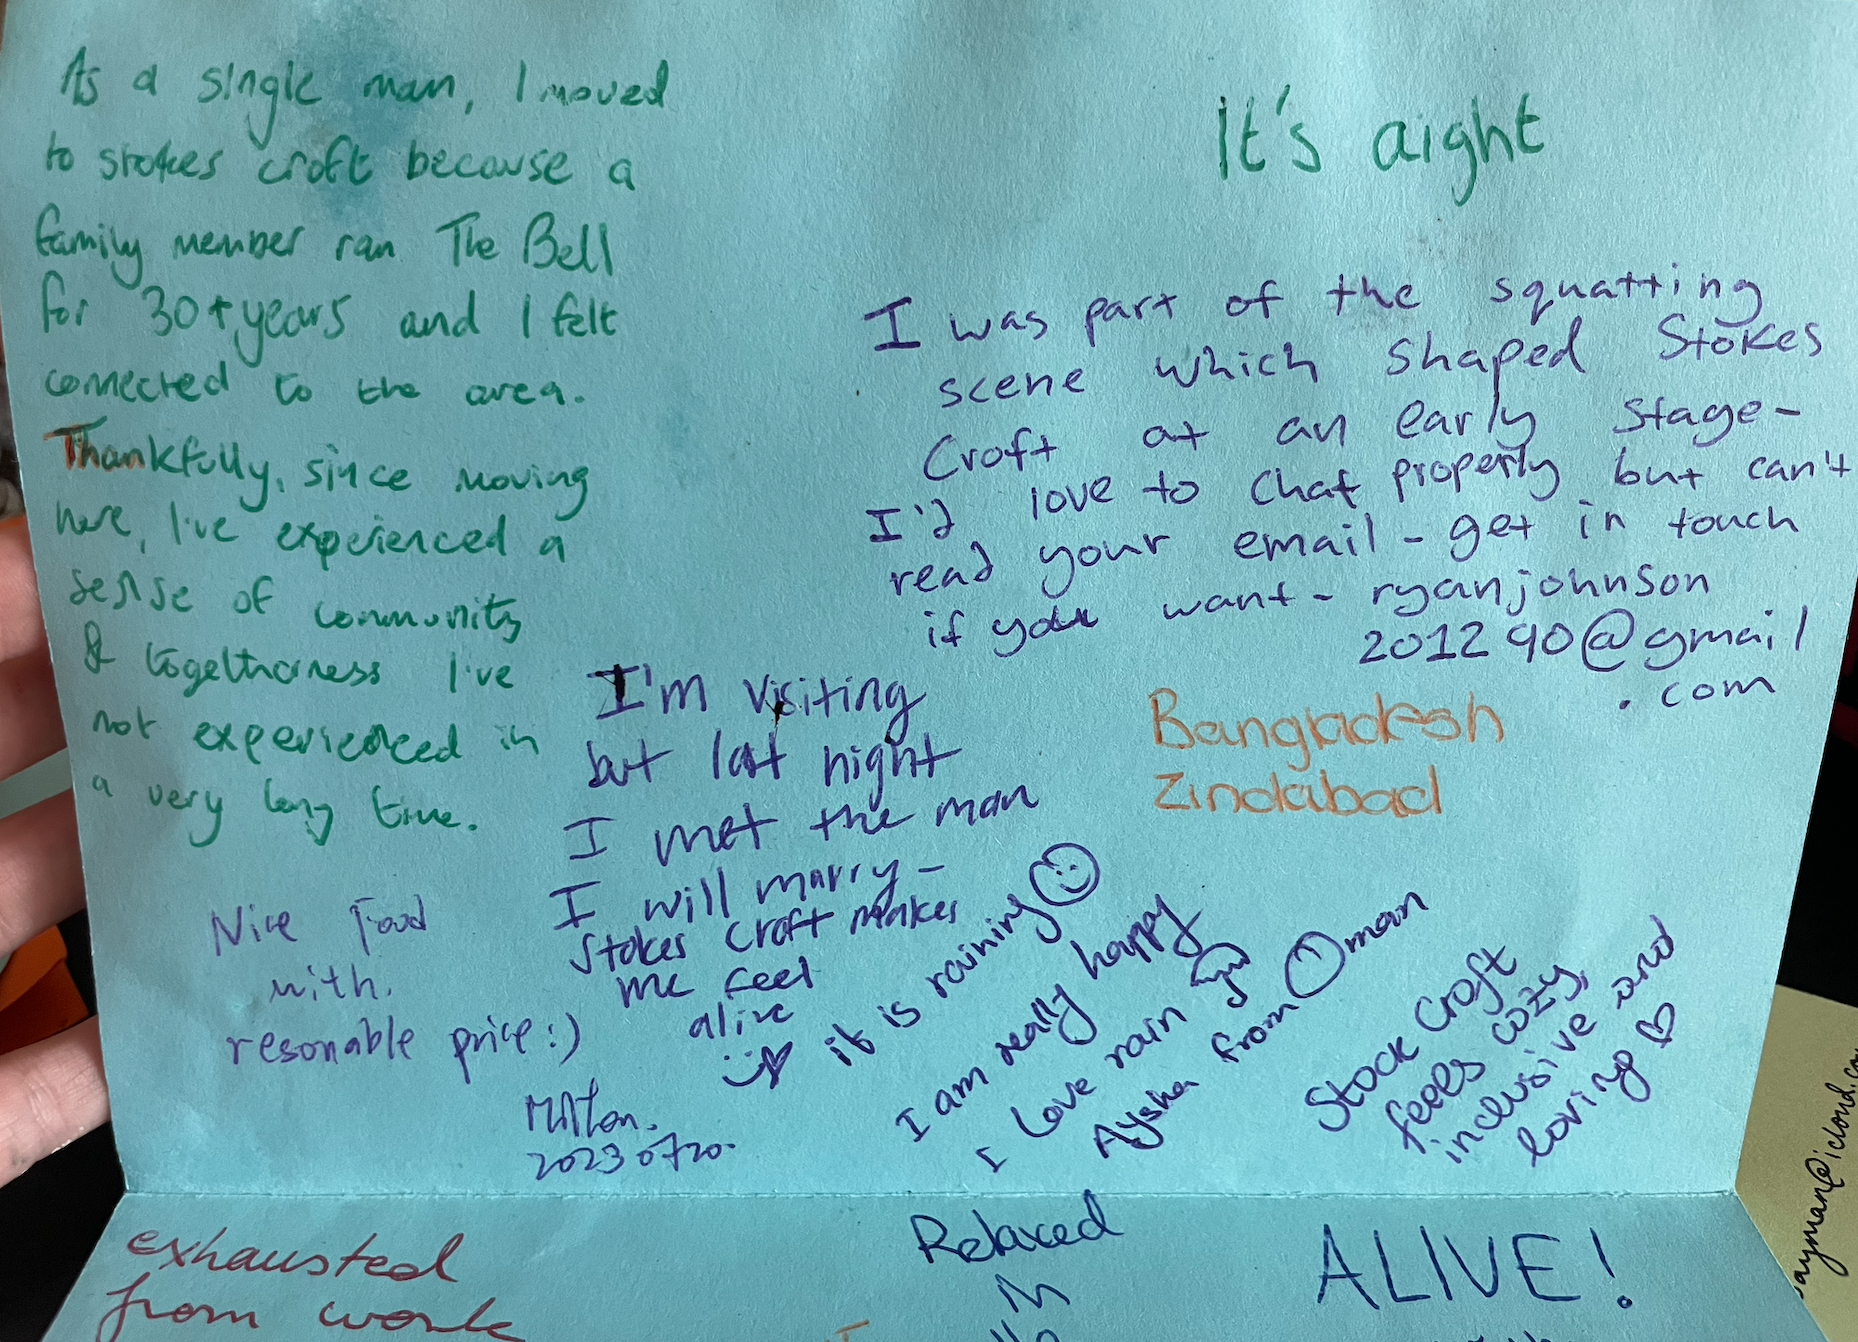 As a single man, I moved
to stokes croft because a
family member ran The Bell
for 30+ years and I felt
connected to the area.
Thankfully, since moving
here, I've experienced a
sense of community
& togetherness I've
not experienced in
a very long time.
It's aight
I was part of the squatting
scene which shaped Stokes
Croft at an early stage -
I'd love to chat properly but can't
read your email - get in touch
if you want - ryanjohnson
201290@gmail
.com
I'm visiting
but last night
I met the man
I will marry -
Stokes Croft makes
me feel
alive
Bangladesh
Zindabad
Nice Food
with.
resonable price :)
Milton.
20230720.
it is raining
I am really happy
I love rain
Aysha from Oman
Stock Croft
feels cozy,
inclusive and
loving
exhausted
from work
Relaxed
ALIVE!
ayman@icloud.co